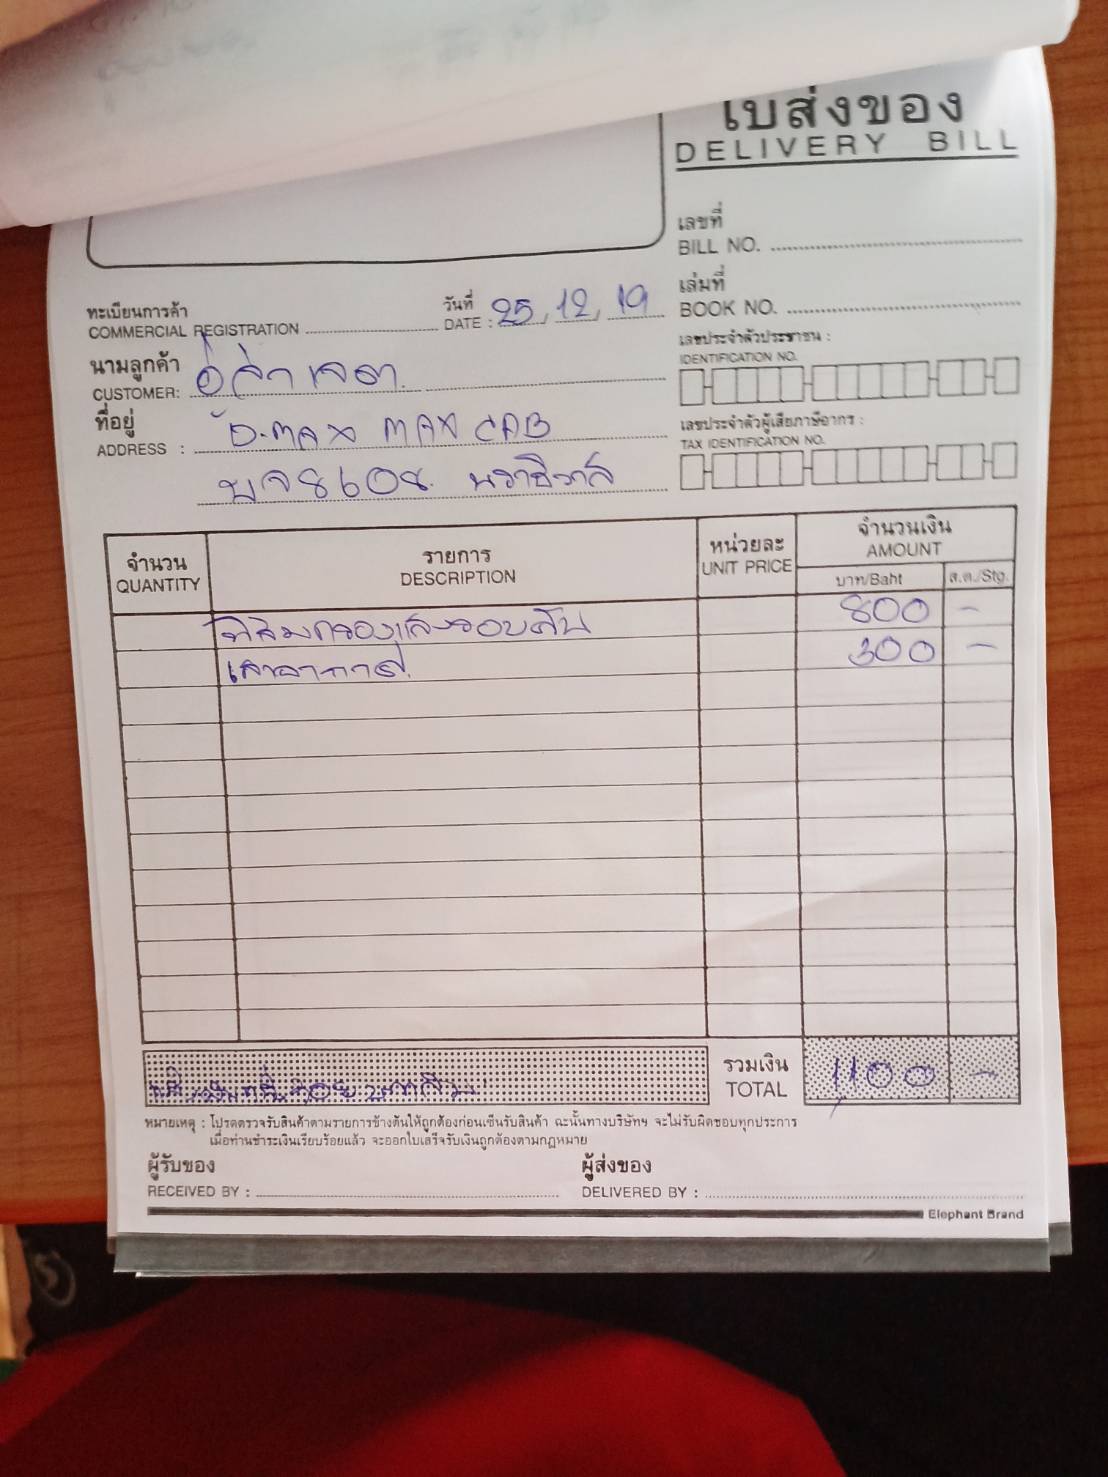 ใบส่งของ
DELIVERY BILL
เลขที่
BILL NO.
เล่มที่
BOOK NO.
ทะเบียนการค้า
COMMERCIAL REGISTRATION
วันที่
DATE : 25, 12, 19
นามลูกค้า
CUSTOMER:
เลขประจำตัวประชาชน :
IDENTIFICATION NO.
ที่อยู่
ADDRESS : D-MAX MAX CAB
บจ8608 นราธิวาส
เลขประจำตัวผู้เสียภาษีอากร :
TAX IDENTIFICATION NO.
จำนวน
QUANTITY
รายการ
DESCRIPTION
หน่วยละ
UNIT PRICE
จำนวนเงิน
AMOUNT
บาท/Baht
ส.ต./Stg.
ฟิล์มกรองแสงรอบคัน 800 -
เสาอากาศ 300 -
รวมเงิน
TOTAL 1,100 -
หมายเหตุ : โปรดตรวจรับสินค้าตามรายการข้างต้นให้ถูกต้องก่อนเซ็นรับสินค้า ฉะนั้นทางบริษัทฯ จะไม่รับผิดชอบทุกประการ
เมื่อท่านชำระเงินเรียบร้อยแล้ว จะออกใบเสร็จรับเงินถูกต้องตามกฎหมาย
ผู้รับของ
RECEIVED BY :
ผู้ส่งของ
DELIVERED BY :
Elephant Brand